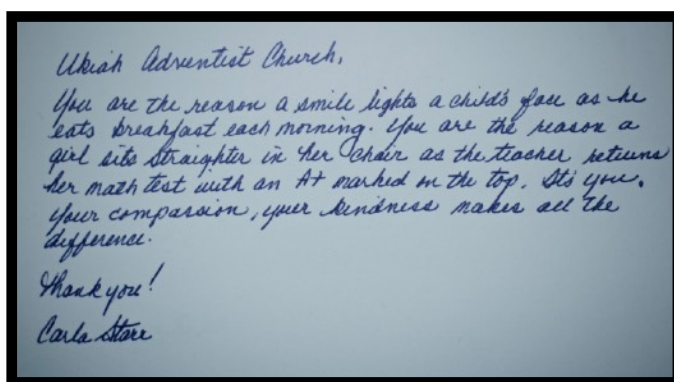 Ukiah Adventist Church,
You are the reason a smile lights a child's face as he
eats breakfast each morning. You are the reason a
girl sits straighter in her chair as the teacher returns
her math test with an A+ marked on the top. It's you.
Your compassion, your kindness makes all the
difference.
Thank you!
Carla Starr